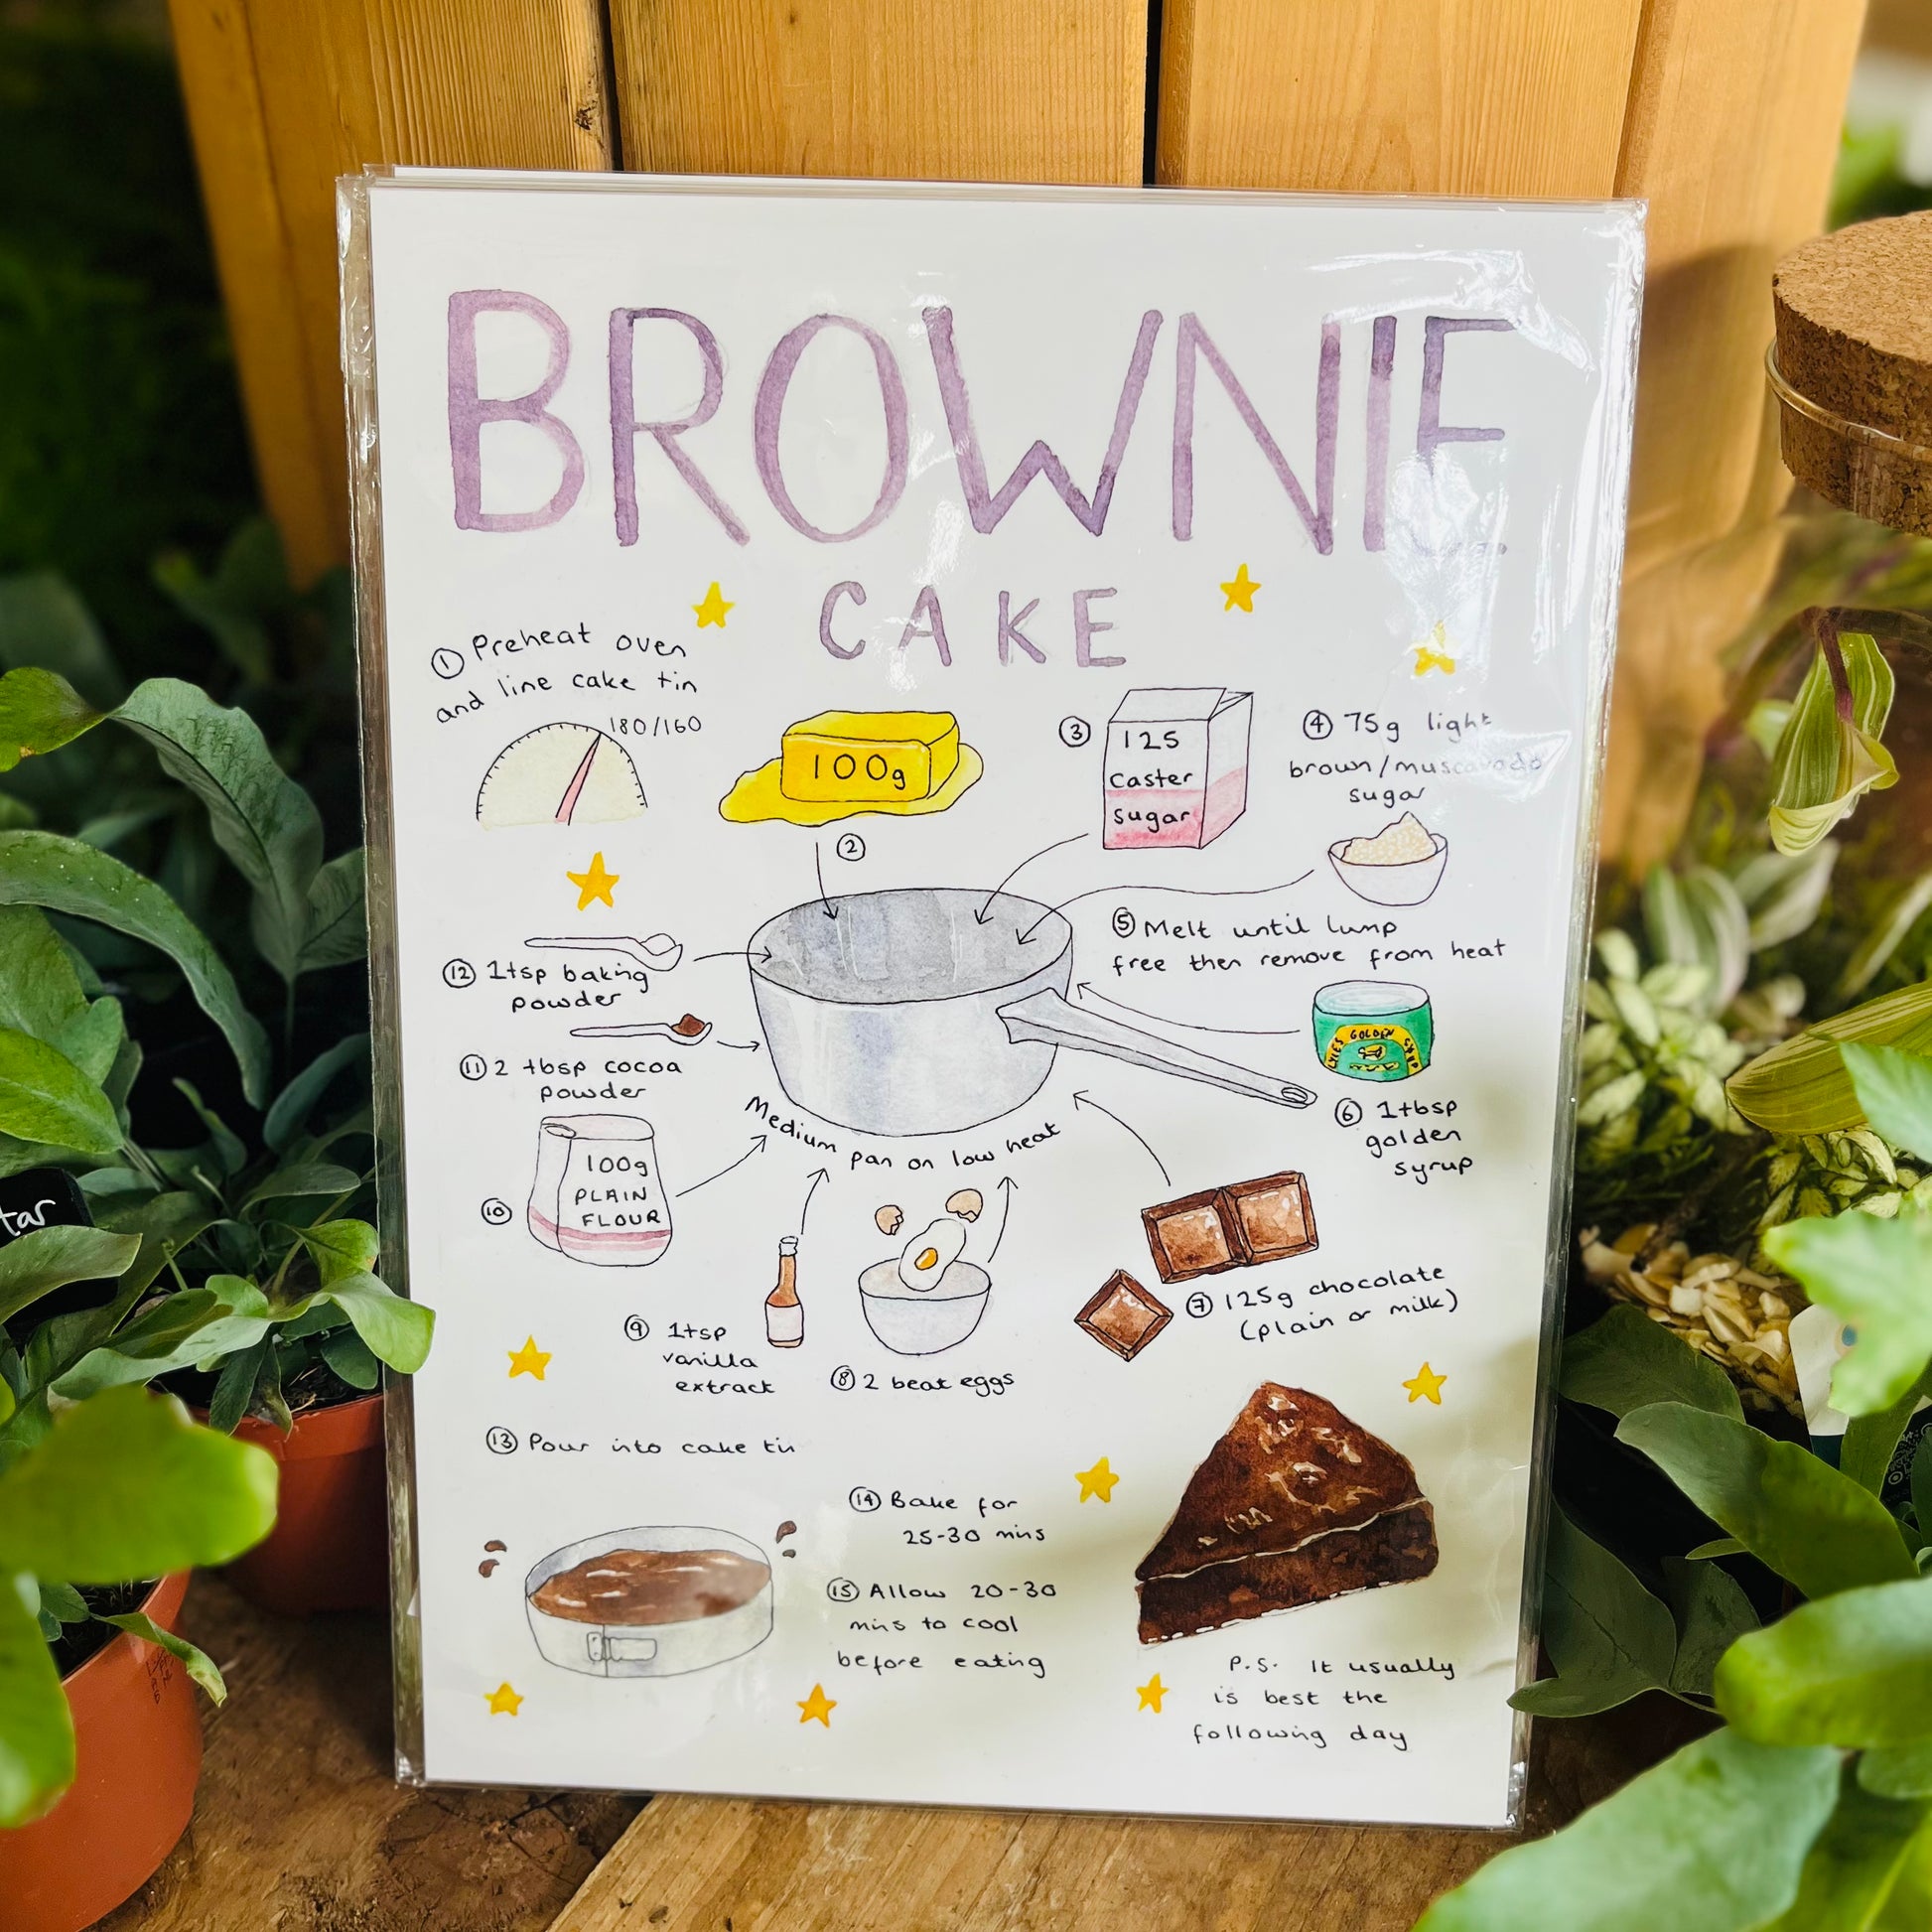 BROWNIE
CAKE
① Preheat oven
and line cake tin
180/160
100g
②
③
125
caster
sugar
④ 75g light
brown/muscovado
sugar
⑤ Melt until lump
free then remove from heat
LYLES GOLDEN SYRUP
⑥ 1tbsp
golden
syrup
⑦ 125g chocolate
(plain or milk)
⑧ 2 beat eggs
⑨ 1tsp
vanilla
extract
⑩
100g
PLAIN
FLOUR
⑪ 2 tbsp cocoa
powder
⑫ 1tsp baking
powder
Medium pan on low heat
⑬ Pour into cake tin
⑭ Bake for
25-30 mins
⑮ Allow 20-30
mins to cool
before eating
P.S. It usually
is best the
following day
tar